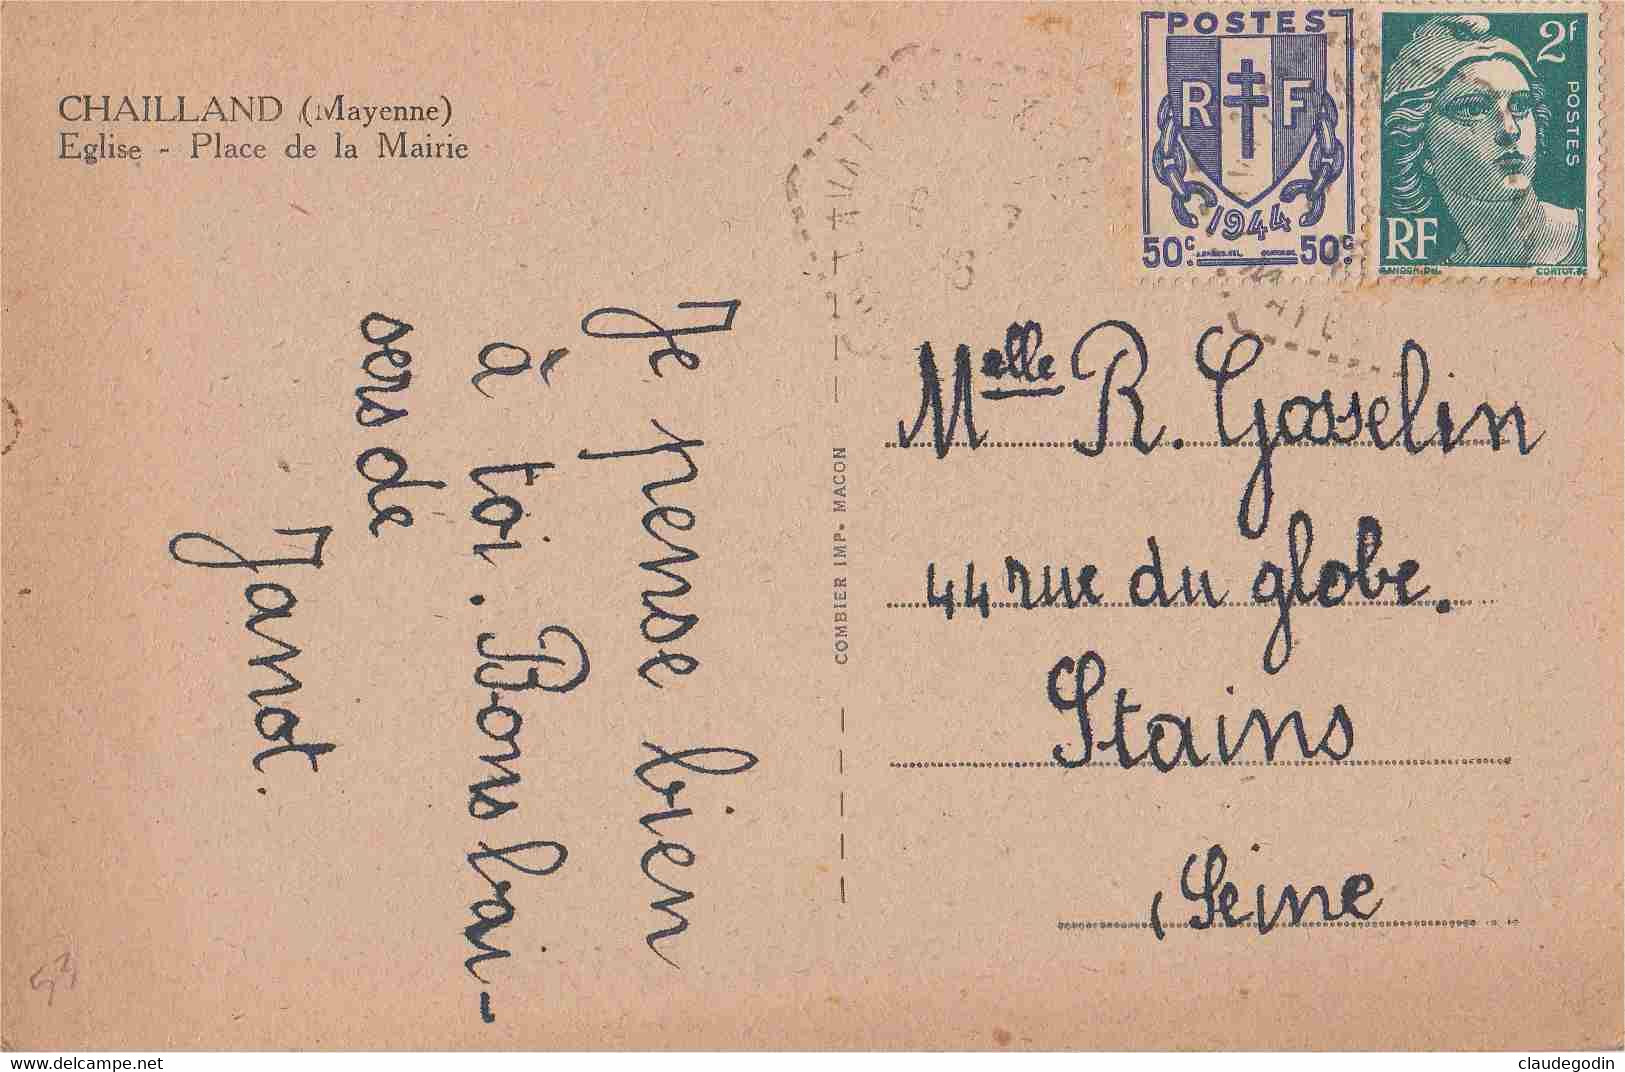 CHAILLAND (Mayenne)
Eglise - Place de la Mairie
Je pense bien
à toi. Bons bai-
sers de
Janot.
COMBIER IMP. MACON
POSTES
R F
1944
50c. 50c.
2f
POSTES
RF
GANDON.DEL.
CORTOT.SC
Melle R. Gosselin
44 rue du globe.
Stains
Seine
claudegodin